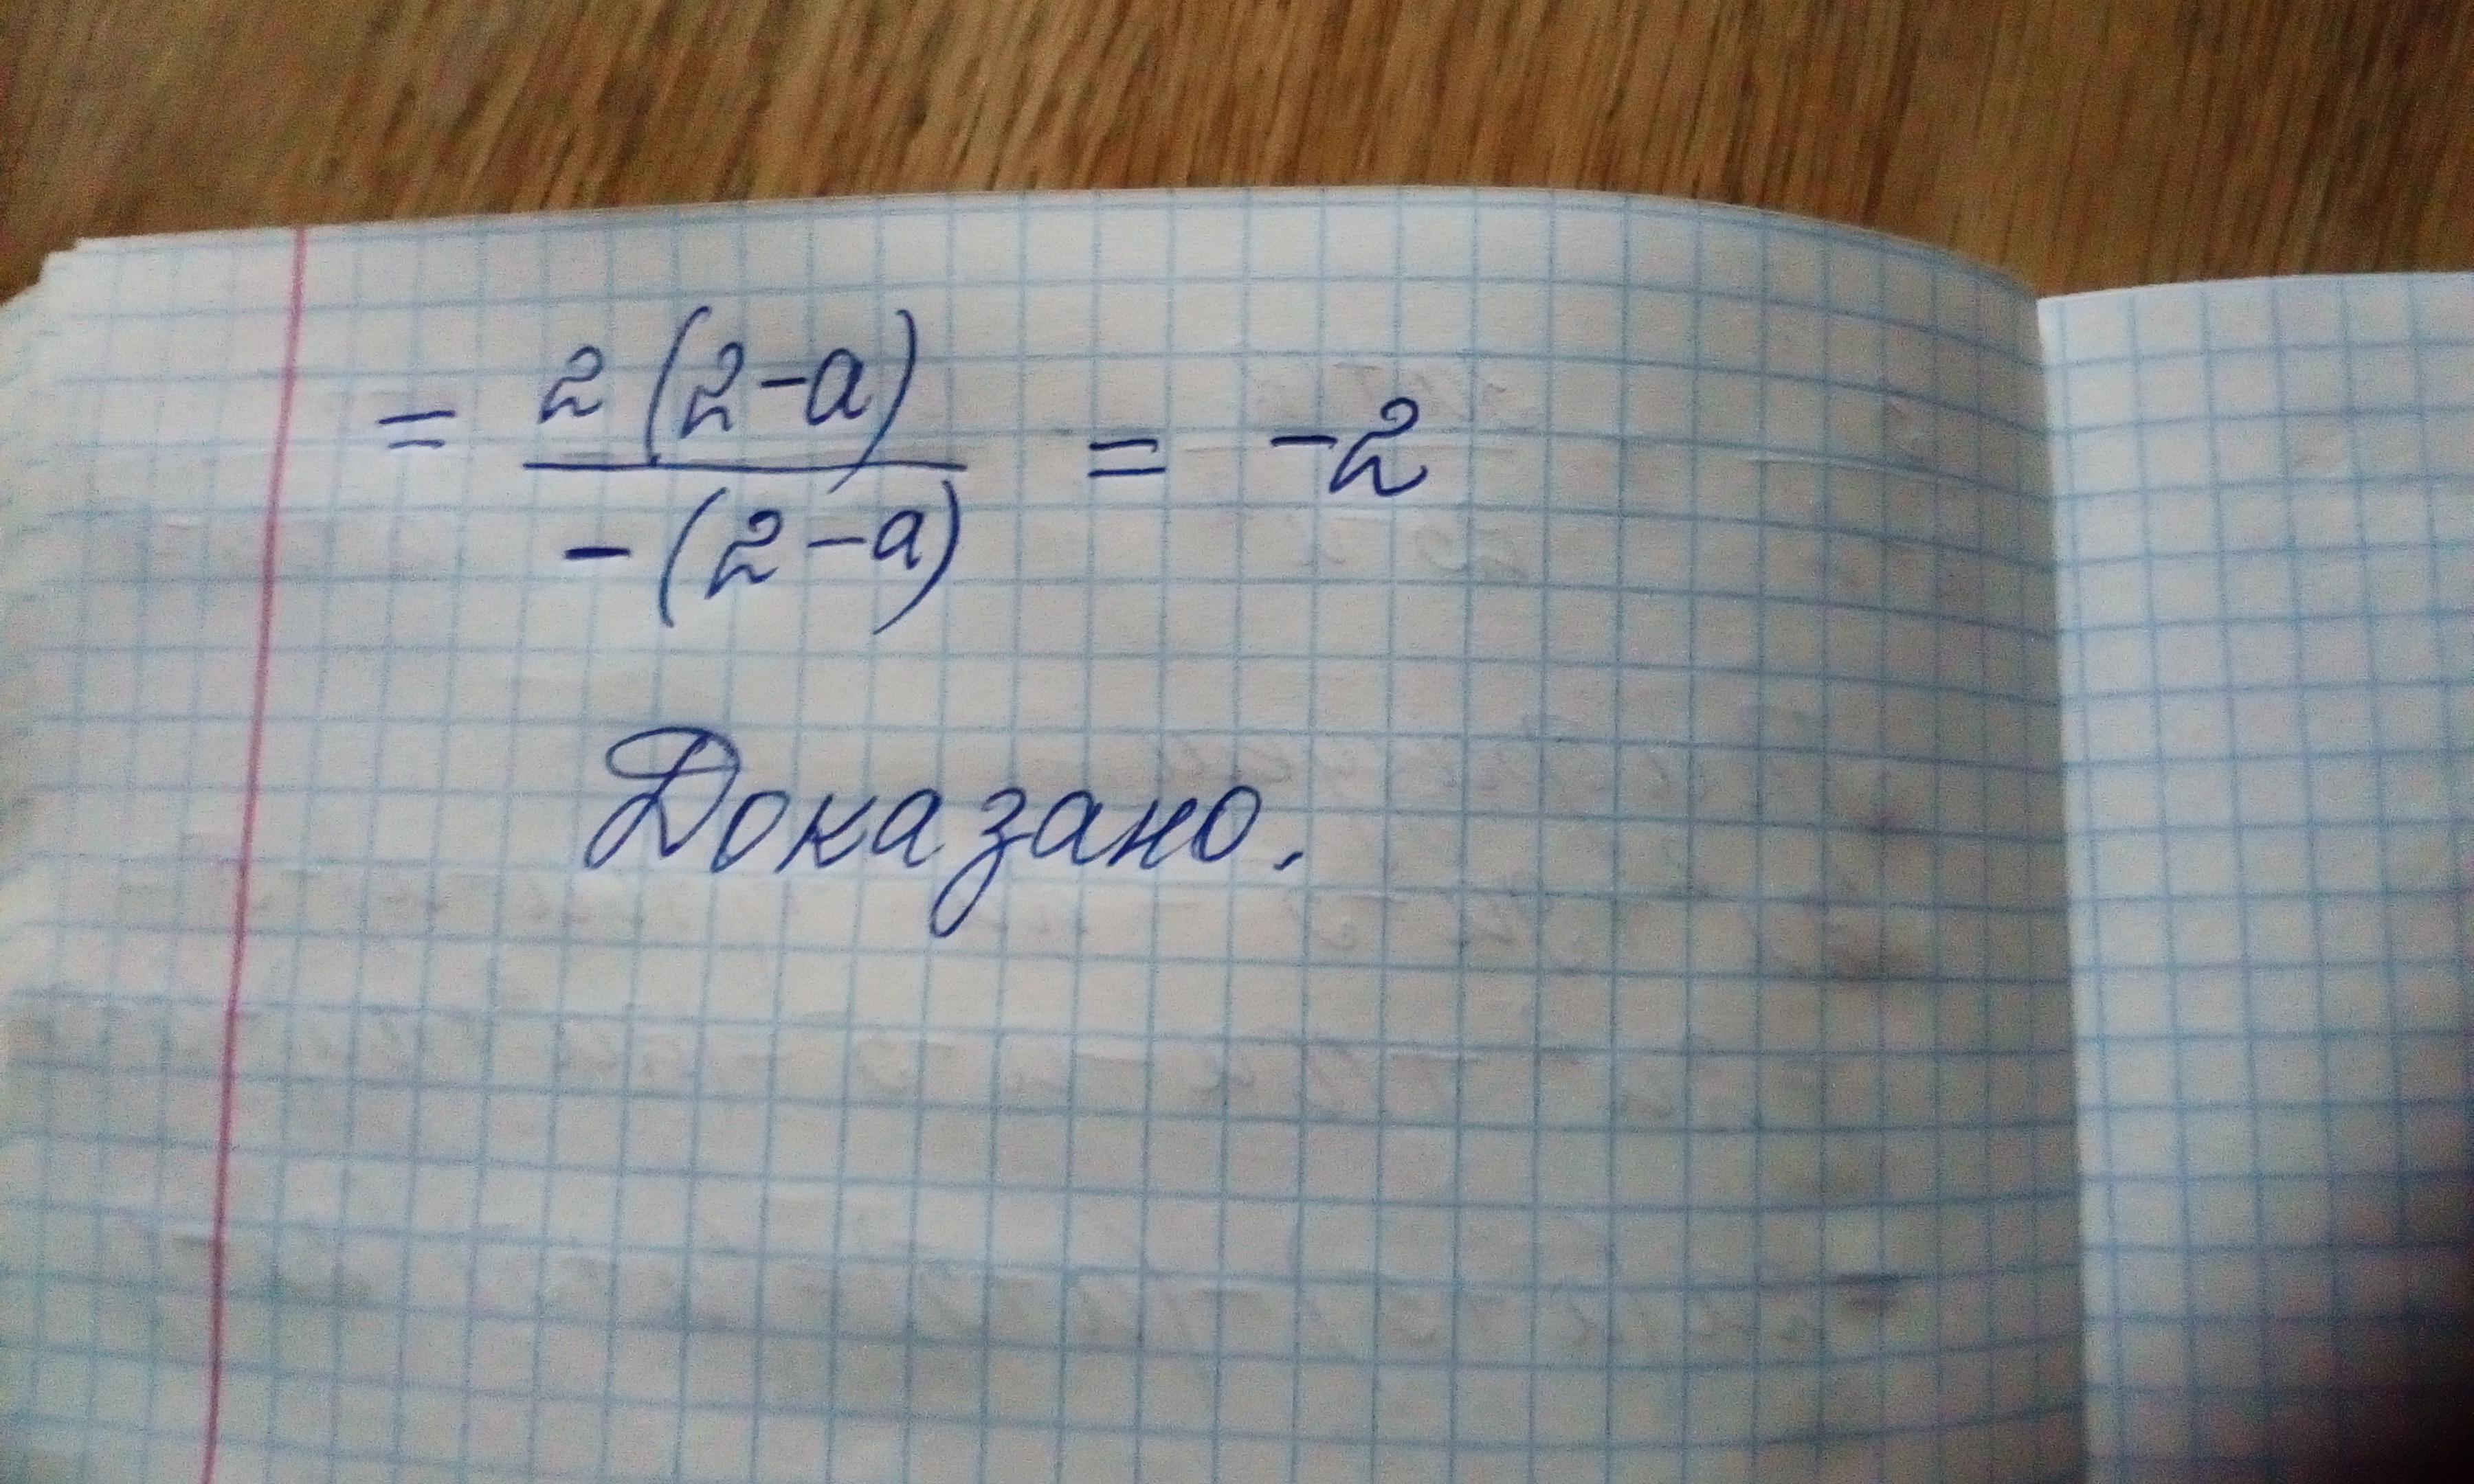 = 2(2-a) / -(2-a) = -2
Доказано.